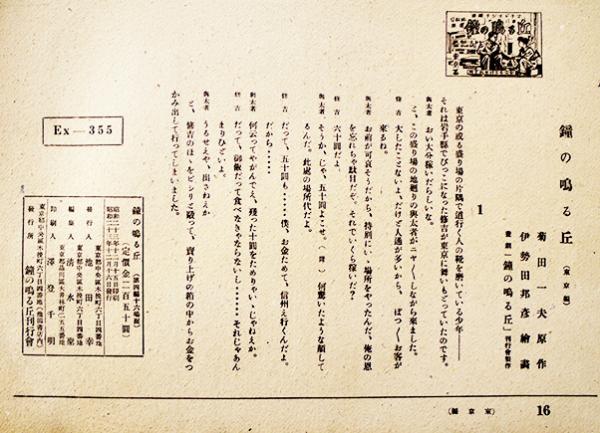 鐘の鳴る丘
鐘の鳴る丘（東京編）
菊田一夫原作
伊勢田邦彦繪畫
畫劇「鐘の鳴る丘」刊行會製作
1
東京の或る盛り場の片隅で道行く人の靴を磨いている少年――
それは岩手縣でびっこになった修吉が東京に舞いもどっていたのです。
與太者　おい大分稼いだらしいな。
と、この盛り場の地廻りの與太者がニヤ〳〵しながら來ました。
修吉　大したことないよ。だけど人通が多いから、ぽつ〳〵お客が
來るね。
與太者　お前が可哀そうだから、特別にいゝ場所をやったんだ、俺の恩
を忘れちゃ駄目だぞ。それでいくら稼いだ？
修吉　六十圓だよ。
與太者　そうか、じゃ、五十圓よこせ。何驚いたような顔して
るんだ。此處の場所代だよ。
修吉　だって、五十圓も……僕、お金ためて、信州え行くんだよ。
だから……
與太者　何云ってやがんでえ、殘った十圓をためりゃいゝじゃねえか。
修吉　だって、御飯だって食べなきゃならないし……それじゃあん
まりひどいよ。
與太者　うるせえや、出さねえか
と、修吉のほゝをピシリと毆って、賣り上げの箱の中からお金をつ
かみ出して行ってしまいました。
Ex―355
鐘の鳴る丘（第四編十六場面）
（定價金二百五十圓）
昭和二十三年十二月十五日印刷
昭和二十三年十二月十六日發行
東京都中央區木挽町六丁目四番地
發行人　池田　幸
東京都中央區木挽町六丁目四番地
編集人　清水　　
東京都品川區大井林町二五五番地
印刷人　澤　登千明
東京都中央區木挽町六丁目四番地
發行所　鐘の鳴る丘刊行會
（東京編）
16